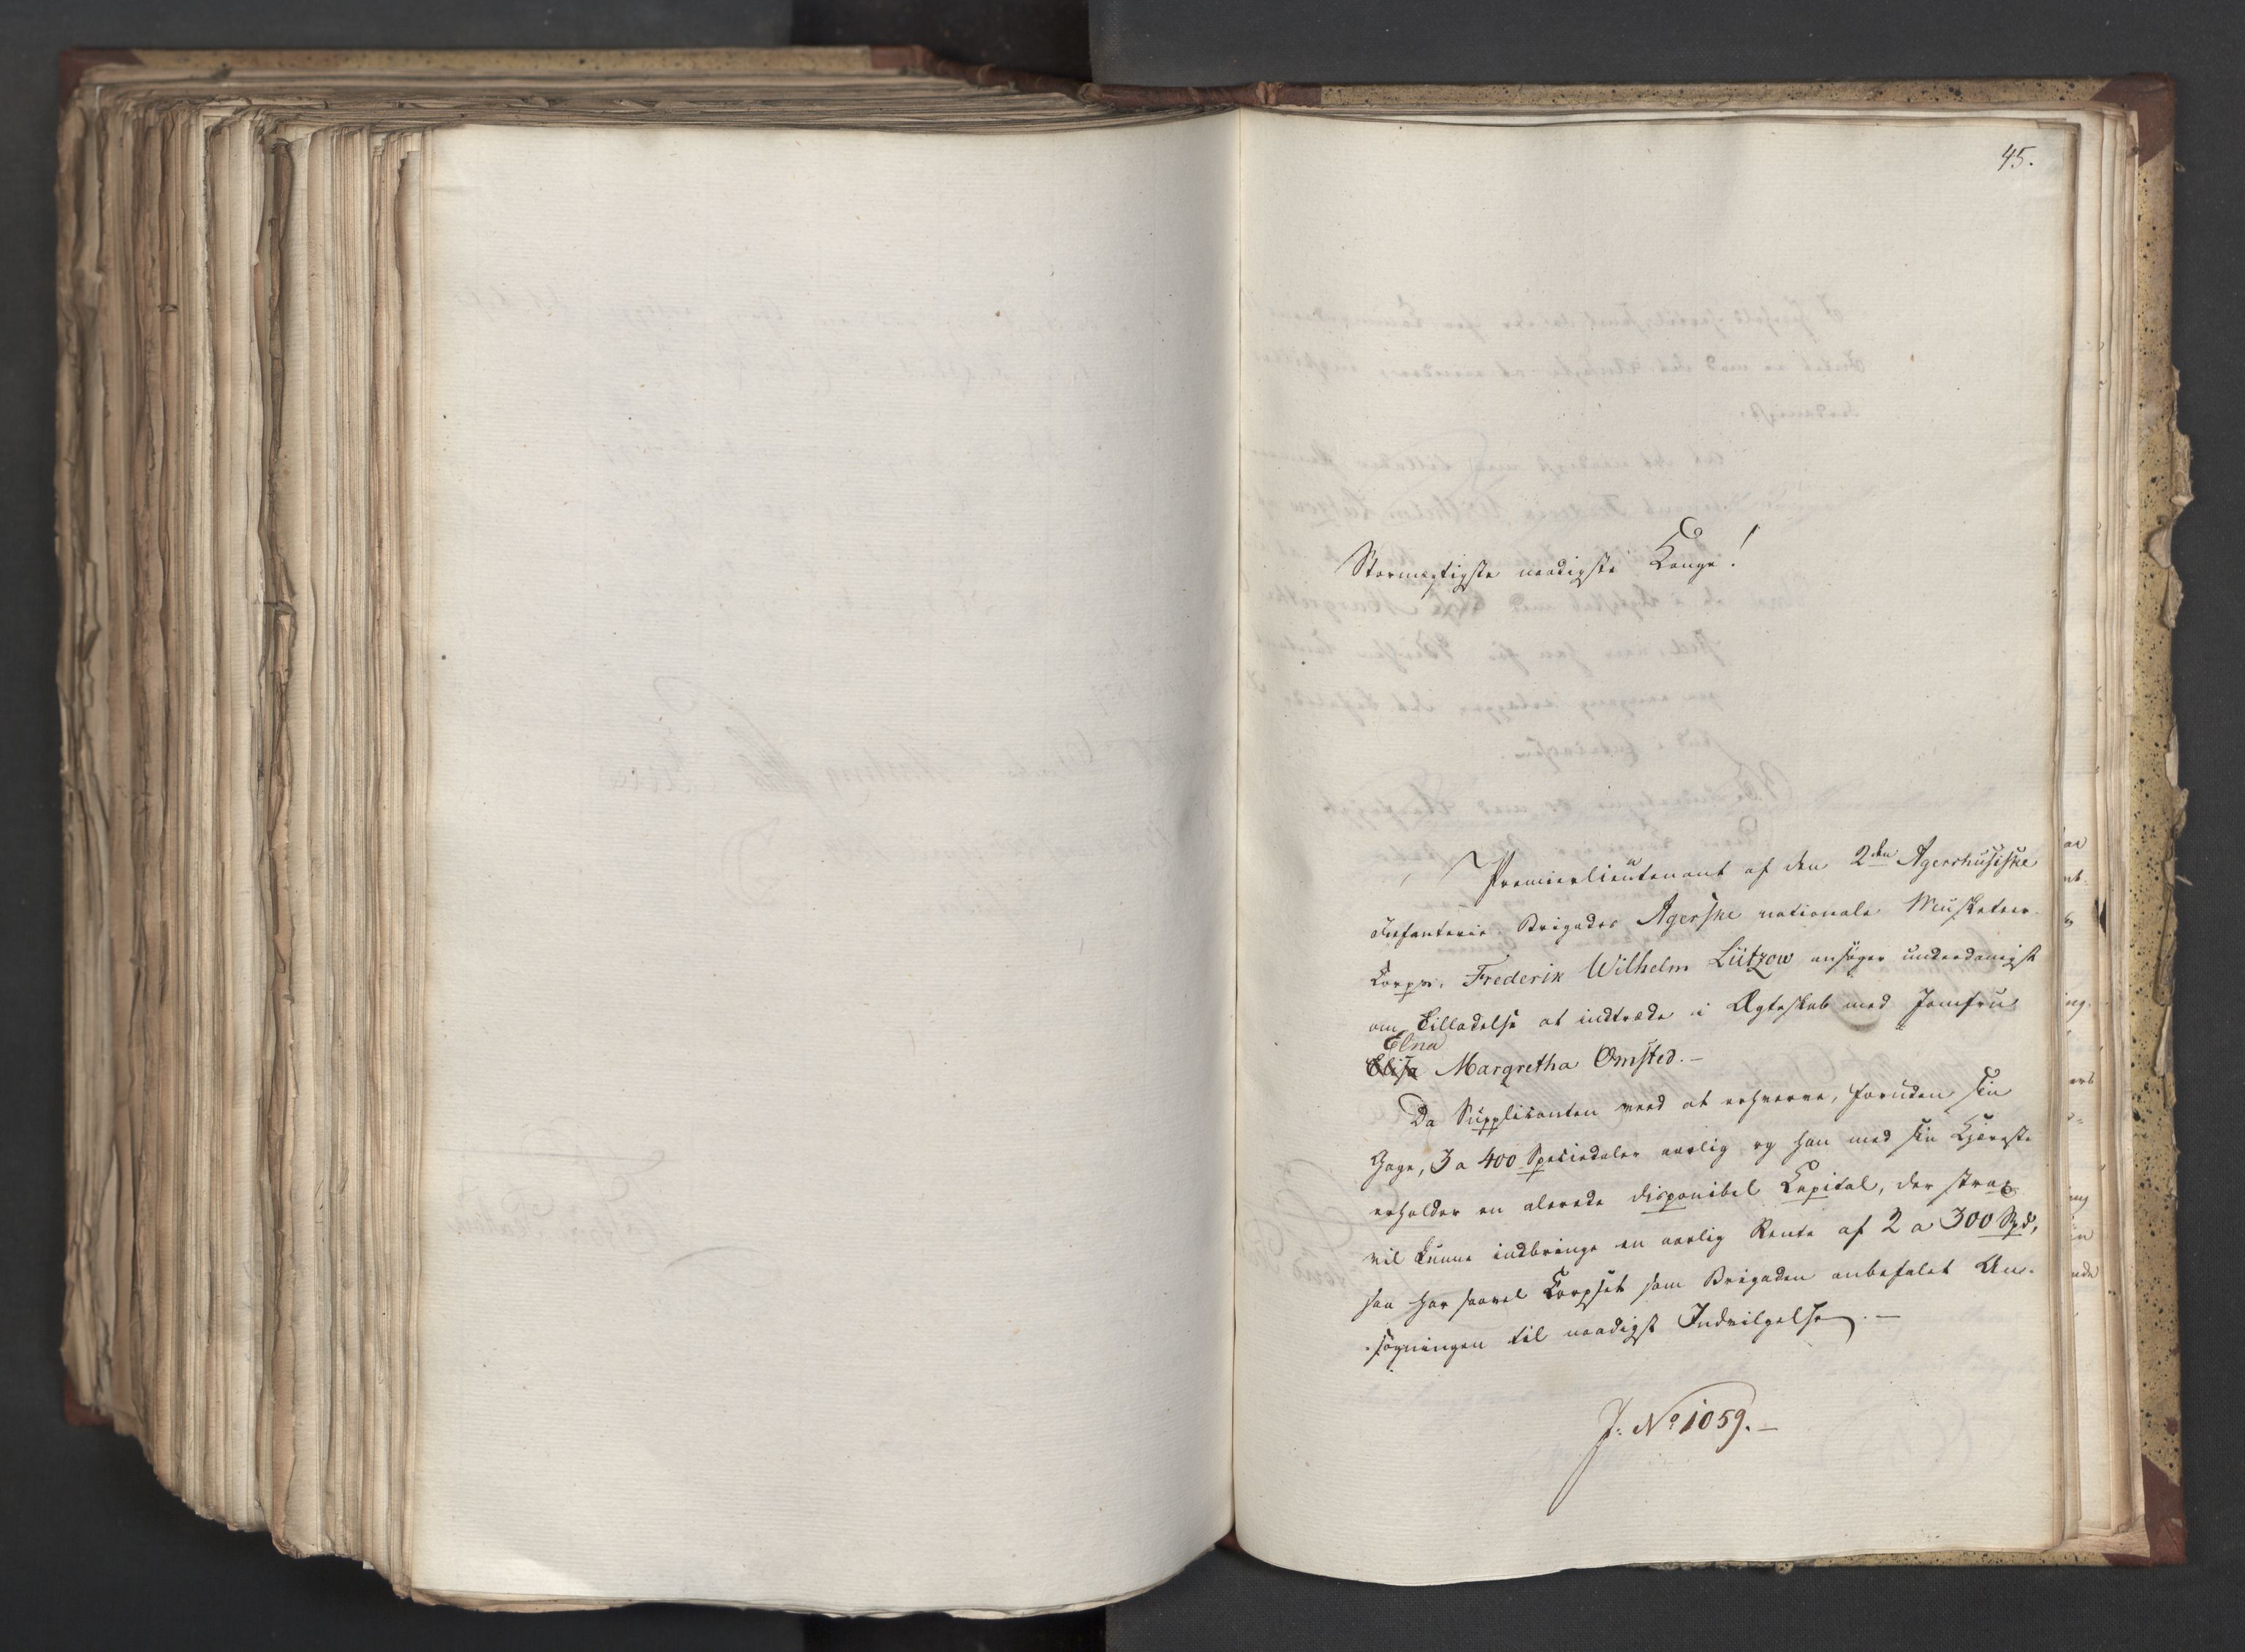 45.
Stormægtigste naadigste Konge!
Premierlieutenant af den 2den Agershusiske
Infanterie Brigades Agerske nationale Musketeer-
Corps, Frederik Wilhelm Lützow ansøger underdanigst
om Tilladelse at indtræde i Ægteskab med Jomfrue
Elna
Elisa Margretha Omsted.-
Da Supplicanten veed at erhverve, foruden sin
Gage, 3 a 400 Speciedaler aarlig og han med sin Kjæreste
erholder en alerede disponibel Capital, der strax
vil kunne indbringe en aarlig Rente af 2 a 300 Spd,
saa har saavel Corpset som Brigaden anbefalet An-
søgningen til naadigst Indvilgelse.-
J. No 1059.-